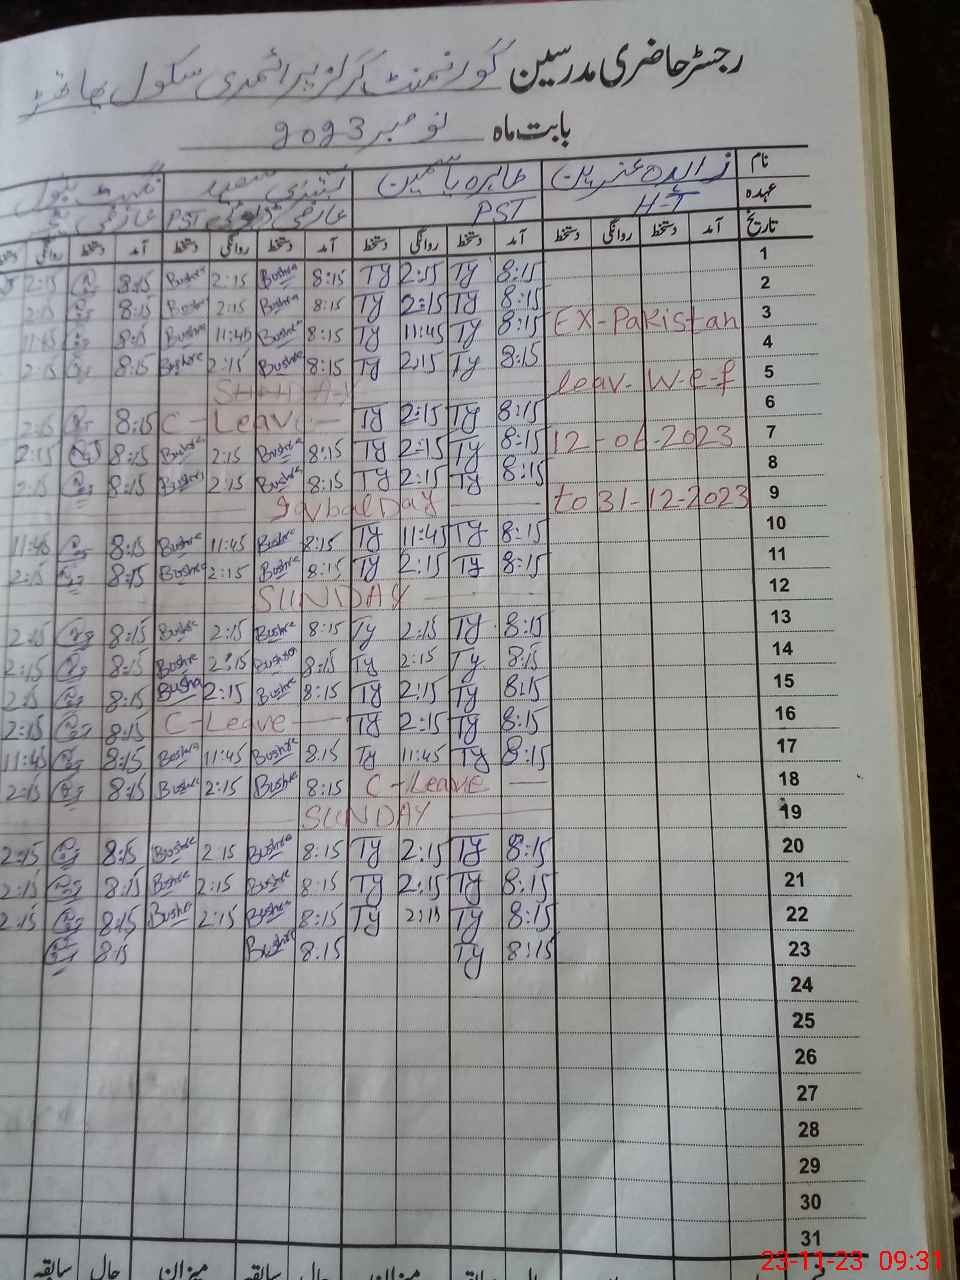 رجسٹر حاضری مدرسین گورنمنٹ گرلز پرائمری سکول
بابت ماہ نومبر 2023
نام زاہدہ عنبرین طاہرہ یاسمین بشریٰ سعید
عہدہ HT PST PST عارضی عارضی
تاریخ آمد دستخط روانگی دستخط آمد دستخط روانگی دستخط آمد دستخط روانگی دستخط آمد دستخط روانگی دستخط
1 8:15 Ty 2:15 Ty 8:15 Bushra 2:15 Bushra 8:15 2:15
2 8:15 Ty 2:15 Ty 8:15 Bushra 2:15 Bushra 8:15 2:15
3 EX-Pakistan 8:15 Ty 11:45 Ty 8:15 Bushra 11:45 Bushra 8:15 11:45
4 8:15 Ty 2:15 Ty 8:15 Bushra 2:15 Bushra 8:15 2:15
5 leav- W-e-f SUNDAY
6 8:15 Ty 2:15 Ty C-Leave 8:15 2:15
7 12-06-2023 8:15 Ty 2:15 Ty 8:15 Bushra 2:15 Bushra 8:15 2:15
8 8:15 Ty 2:15 Ty 8:15 Bushra 2:15 Bushra 8:15 2:15
9 to 31-12-2023 Iqbal Day
10 8:15 Ty 11:45 Ty 8:15 Bushra 11:45 Bushra 8:15 11:45
11 8:15 Ty 2:15 Ty 8:15 Bushra 2:15 Bushra 8:15 2:15
12 SUNDAY
13 8:15 Ty 2:15 Ty 8:15 Bushra 2:15 Bushra 8:15 2:15
14 8:15 Ty 2:15 Ty 8:15 Bushra 2:15 Bushra 8:15 2:15
15 8:15 Ty 2:15 Ty 8:15 Bushra 2:15 Bushra 8:15 2:15
16 8:15 Ty 2:15 Ty C-Leave 8:15 2:15
17 8:15 Ty 11:45 Ty 8:15 Bushra 11:45 Bushra 8:15 11:45
18 C-Leave 8:15 Bushra 2:15 Bushra 8:15 2:15
19 SUNDAY
20 8:15 Ty 2:15 Ty 8:15 Bushra 2:15 Bushra 8:15 2:15
21 8:15 Ty 2:15 Ty 8:15 Bushra 2:15 Bushra 8:15 2:15
22 8:15 Ty 2:15 Ty 8:15 Bushra 2:15 Bushra 8:15 2:15
23 8:15 Ty 8:15 Bushra 8:15
24
25
26
27
28
29
30
31
حال سابقہ میزان حال سابقہ میزان حال سابقہ
23-11-23 09:31